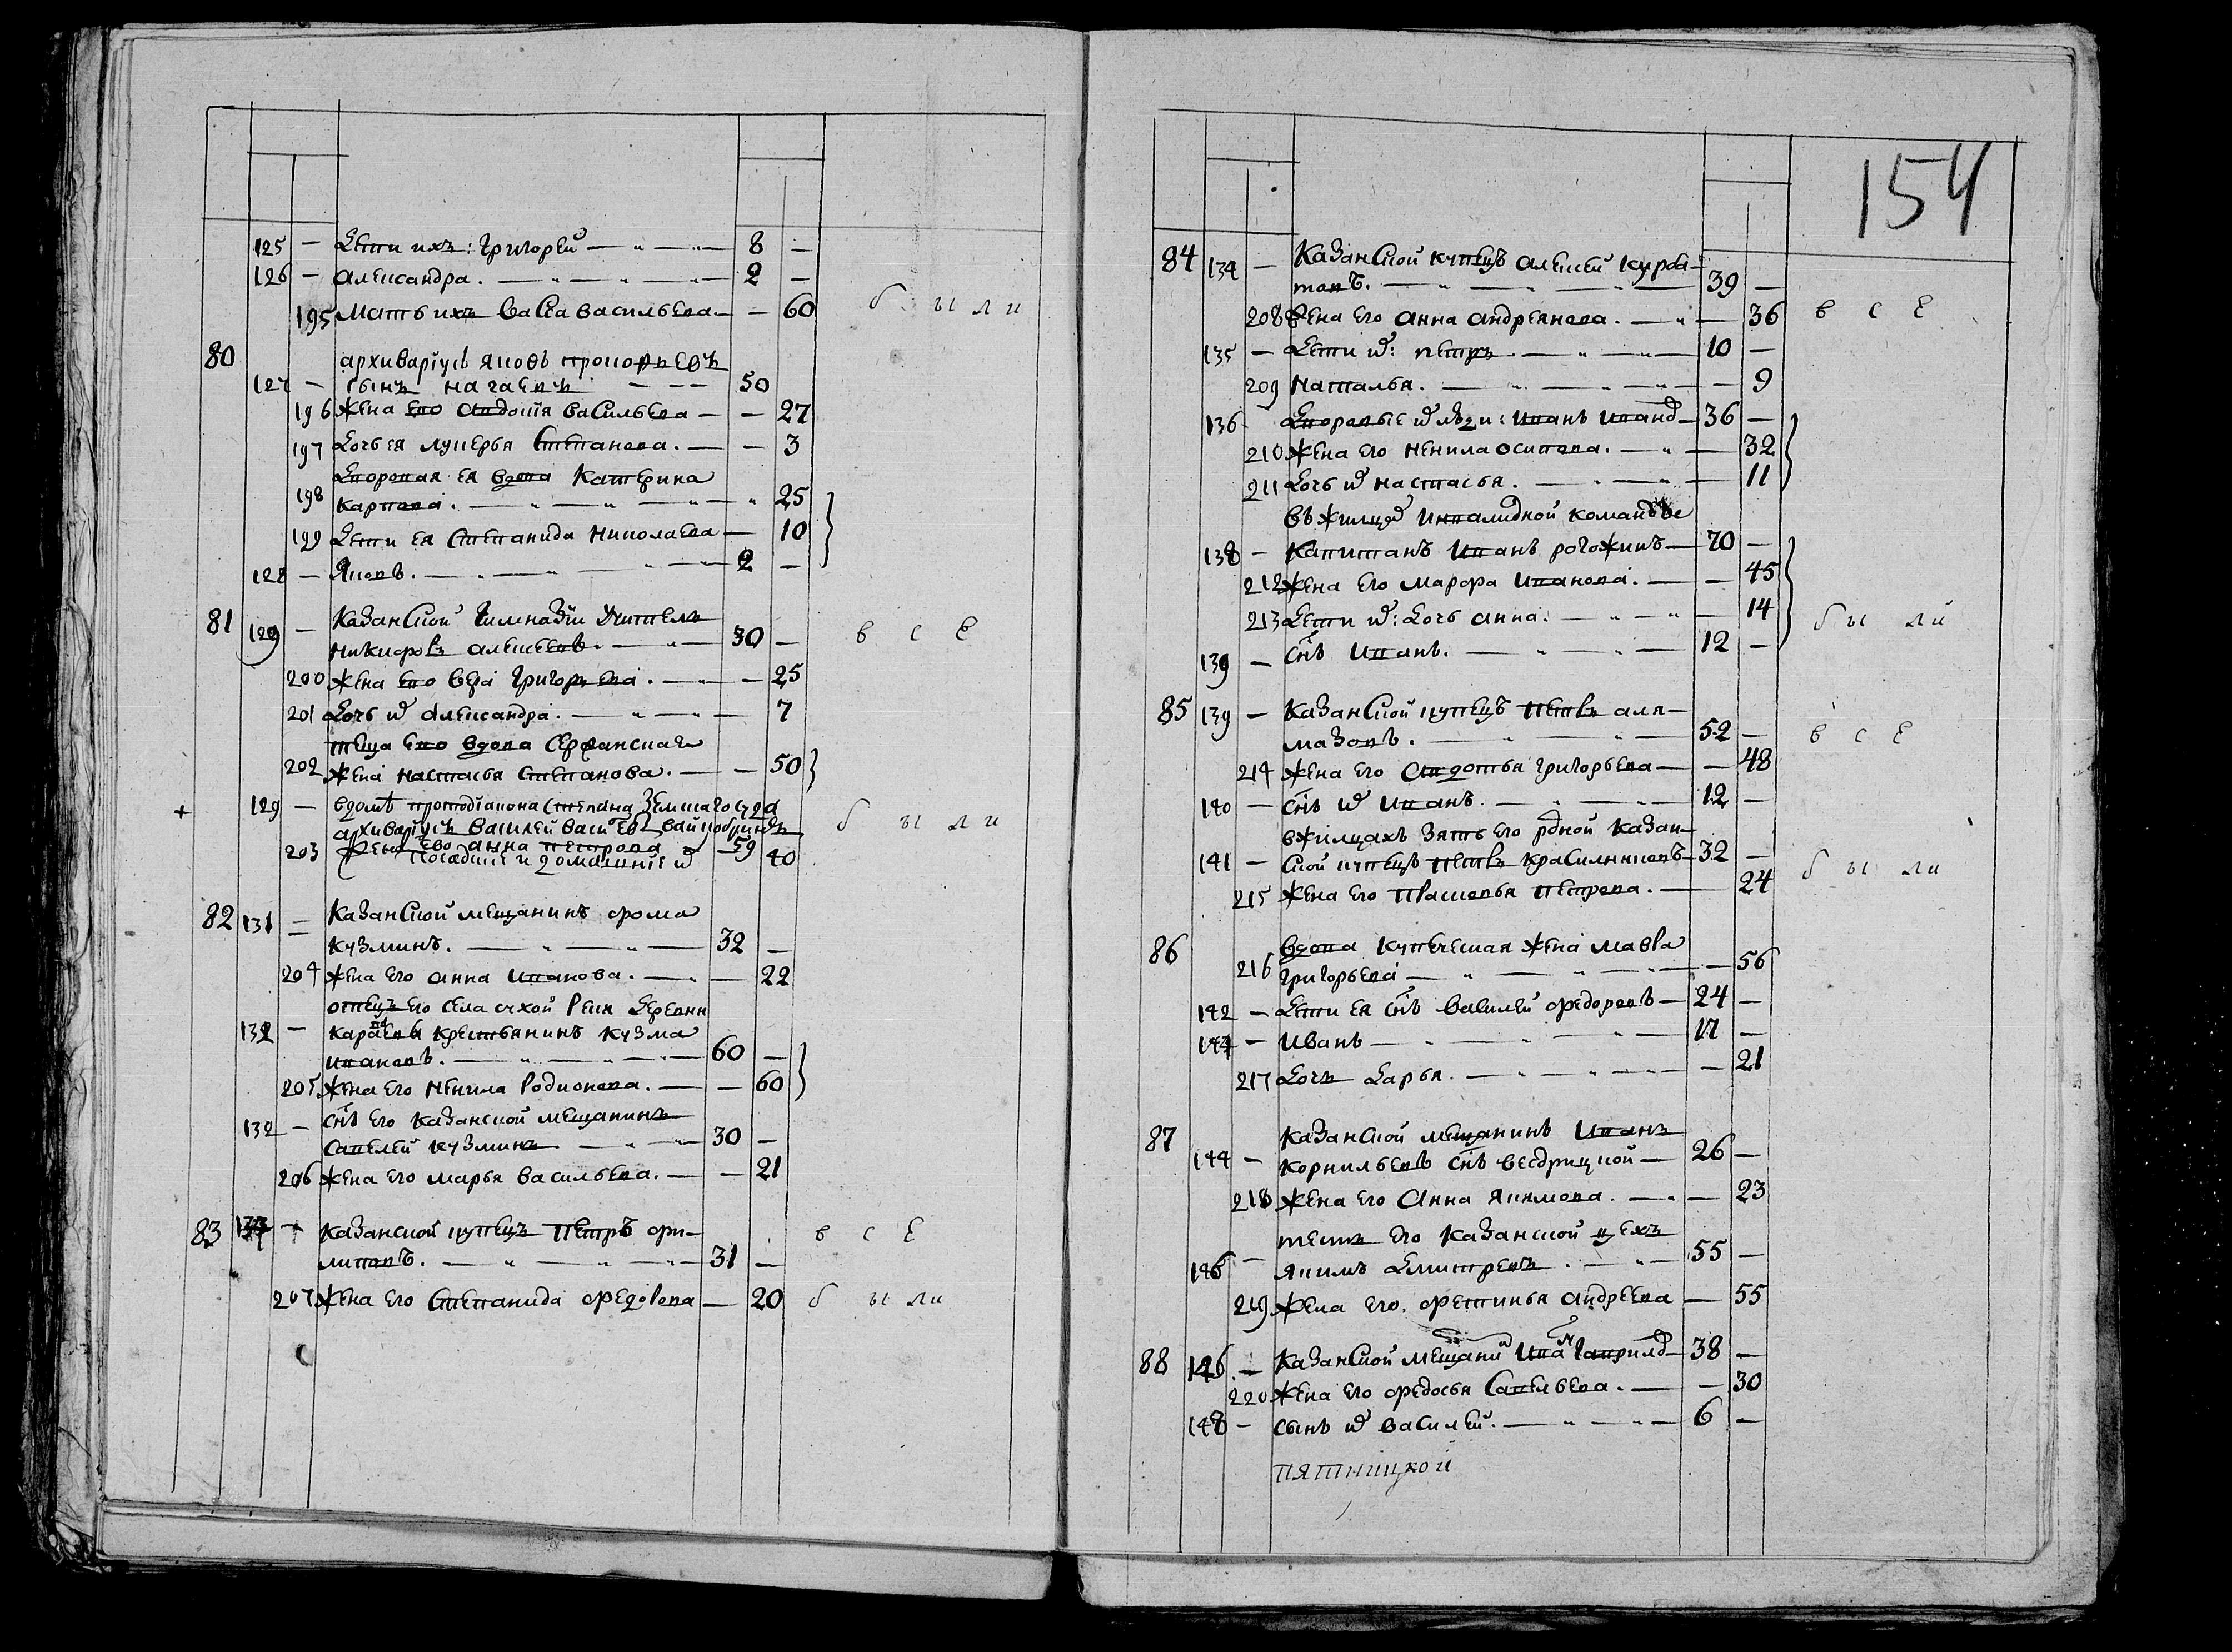 125 — Дети ихъ: Григорей — " — " — 8 —
126 — Александра. — " — " — " — 2 —
195 Мать ихъ Васса Васильева — — 60 были
80 архиваріусъ Яковъ Прокофьевъ
127 — сынъ Нагаевъ — — — 50
196 Жена ево Авдотiя Васильева — — 27
197 Дочь ея Лукерья Степанова. — — 3
Дворовая ея вдова Катерина
198 Карпова. — " — " — " — " 25
199 Дети ея Степанида Николаева — 10
128 — Яковъ. — " — " — " — 2 —
81 129 — Казанской Гимназiи Учитель
Никифоръ Алексеевъ. — " — 30 — все
200 Жена ево Вера Григорьева. — " — 25
201 Дочь и͠х Александра. — " — " — 7
теща ево вдова Сержанская
202 Жена Настасья Степанова. — — 50
+ 129 — вдомѣ протодiакона Степана Земскаго суда
архиваріусъ Василей Васи͠ Вайнобриндъ были
203 Жена Ево Анна Петрова — 59 40
Посадцкiе и домашнiе и͠х
82 131 — Казанской мещанинъ Фома
Кузминъ. — " — " — 32 —
204 Жена его Анна Иванова. — " — 22
отецъ его села сухой Реки Деревни
132 — Караевы крестьянинъ Кузма
Ивановъ. — " — " — " — 60 —
205 Жена его Ненила Родионова. — — 60
132 — сн͠ъ его Казанской мещанинъ
Савелей Кузминъ — " — " — 30 —
206 Жена его Марья Васильева. — — 21
83 — Казанской купецъ Петръ Фи-
липовъ. — " — " — " — 31 — все
207 Жена его Степанида Федорова — 20 были
154
84 134 — Казанской купецъ Алексей Курба-
товъ. — " — " — " — 39 —
208 Жена его Анна Андреянова. — " — 36 все
135 — Дети и͠х: Петръ — " — " — 10 —
209 Наталья. — " — " — " — 9
136 Дворовые и͠х люди: Иванъ Иван͠о — 36 —
210 Жена его Ненила Осипова. — " — 32
211 Дочь и͠х Настасья. — " — " — 11
въ Жилцо͠х Инвалидной команды
138 — Капитанъ Иванъ Рогожинъ — 70 —
212 Жена его Марфа Иванова. — — 45
213 Дети и͠х: Дочь Анна. — " — " — 14 были
139 — сн͠ъ Иванъ. — " — " — 12 —
85 139 — Казанской купецъ Петръ Аля-
мазовъ. — " — " — 52 — все
214 Жена его Авдотья Григорьева — — 48
140 — сн͠ъ и͠х Иванъ — " — " — 12 —
вжилцахъ Зять его рдной Казан-
141 — ской купецъ Петръ Красильниковъ — 32 —
215 Жена его Прасковья Петрова. — 24 были
86 вдова купеческая Жена Мавра
216 Григорьева — " — " — " — 56
142 — Дети ея сн͠ъ Василей Федоровъ — 24 —
144 — Иванъ — " — " — " — 17 —
217 Дочь Дарья. — " — " — " — 21
87 Казанской мещанинъ Иванъ
144 — Корнильевъ сн͠ъ Бесдрицкой — 26 —
218 Жена его Анна Якимова. — " — 23
тесть его Казанской цехъ
146 — Якимъ Дмитревъ. — " — 55 —
219 Жена его. Фетинья Андреева — 55
88 146. — Казанской Мещани͠нъ Ива͠нъ Гаврил͠о — 38 —
220 Жена его Федосья Савельева. — — 30
148 — сынъ и͠х Василей. — " — " — 6 —
пятницкой